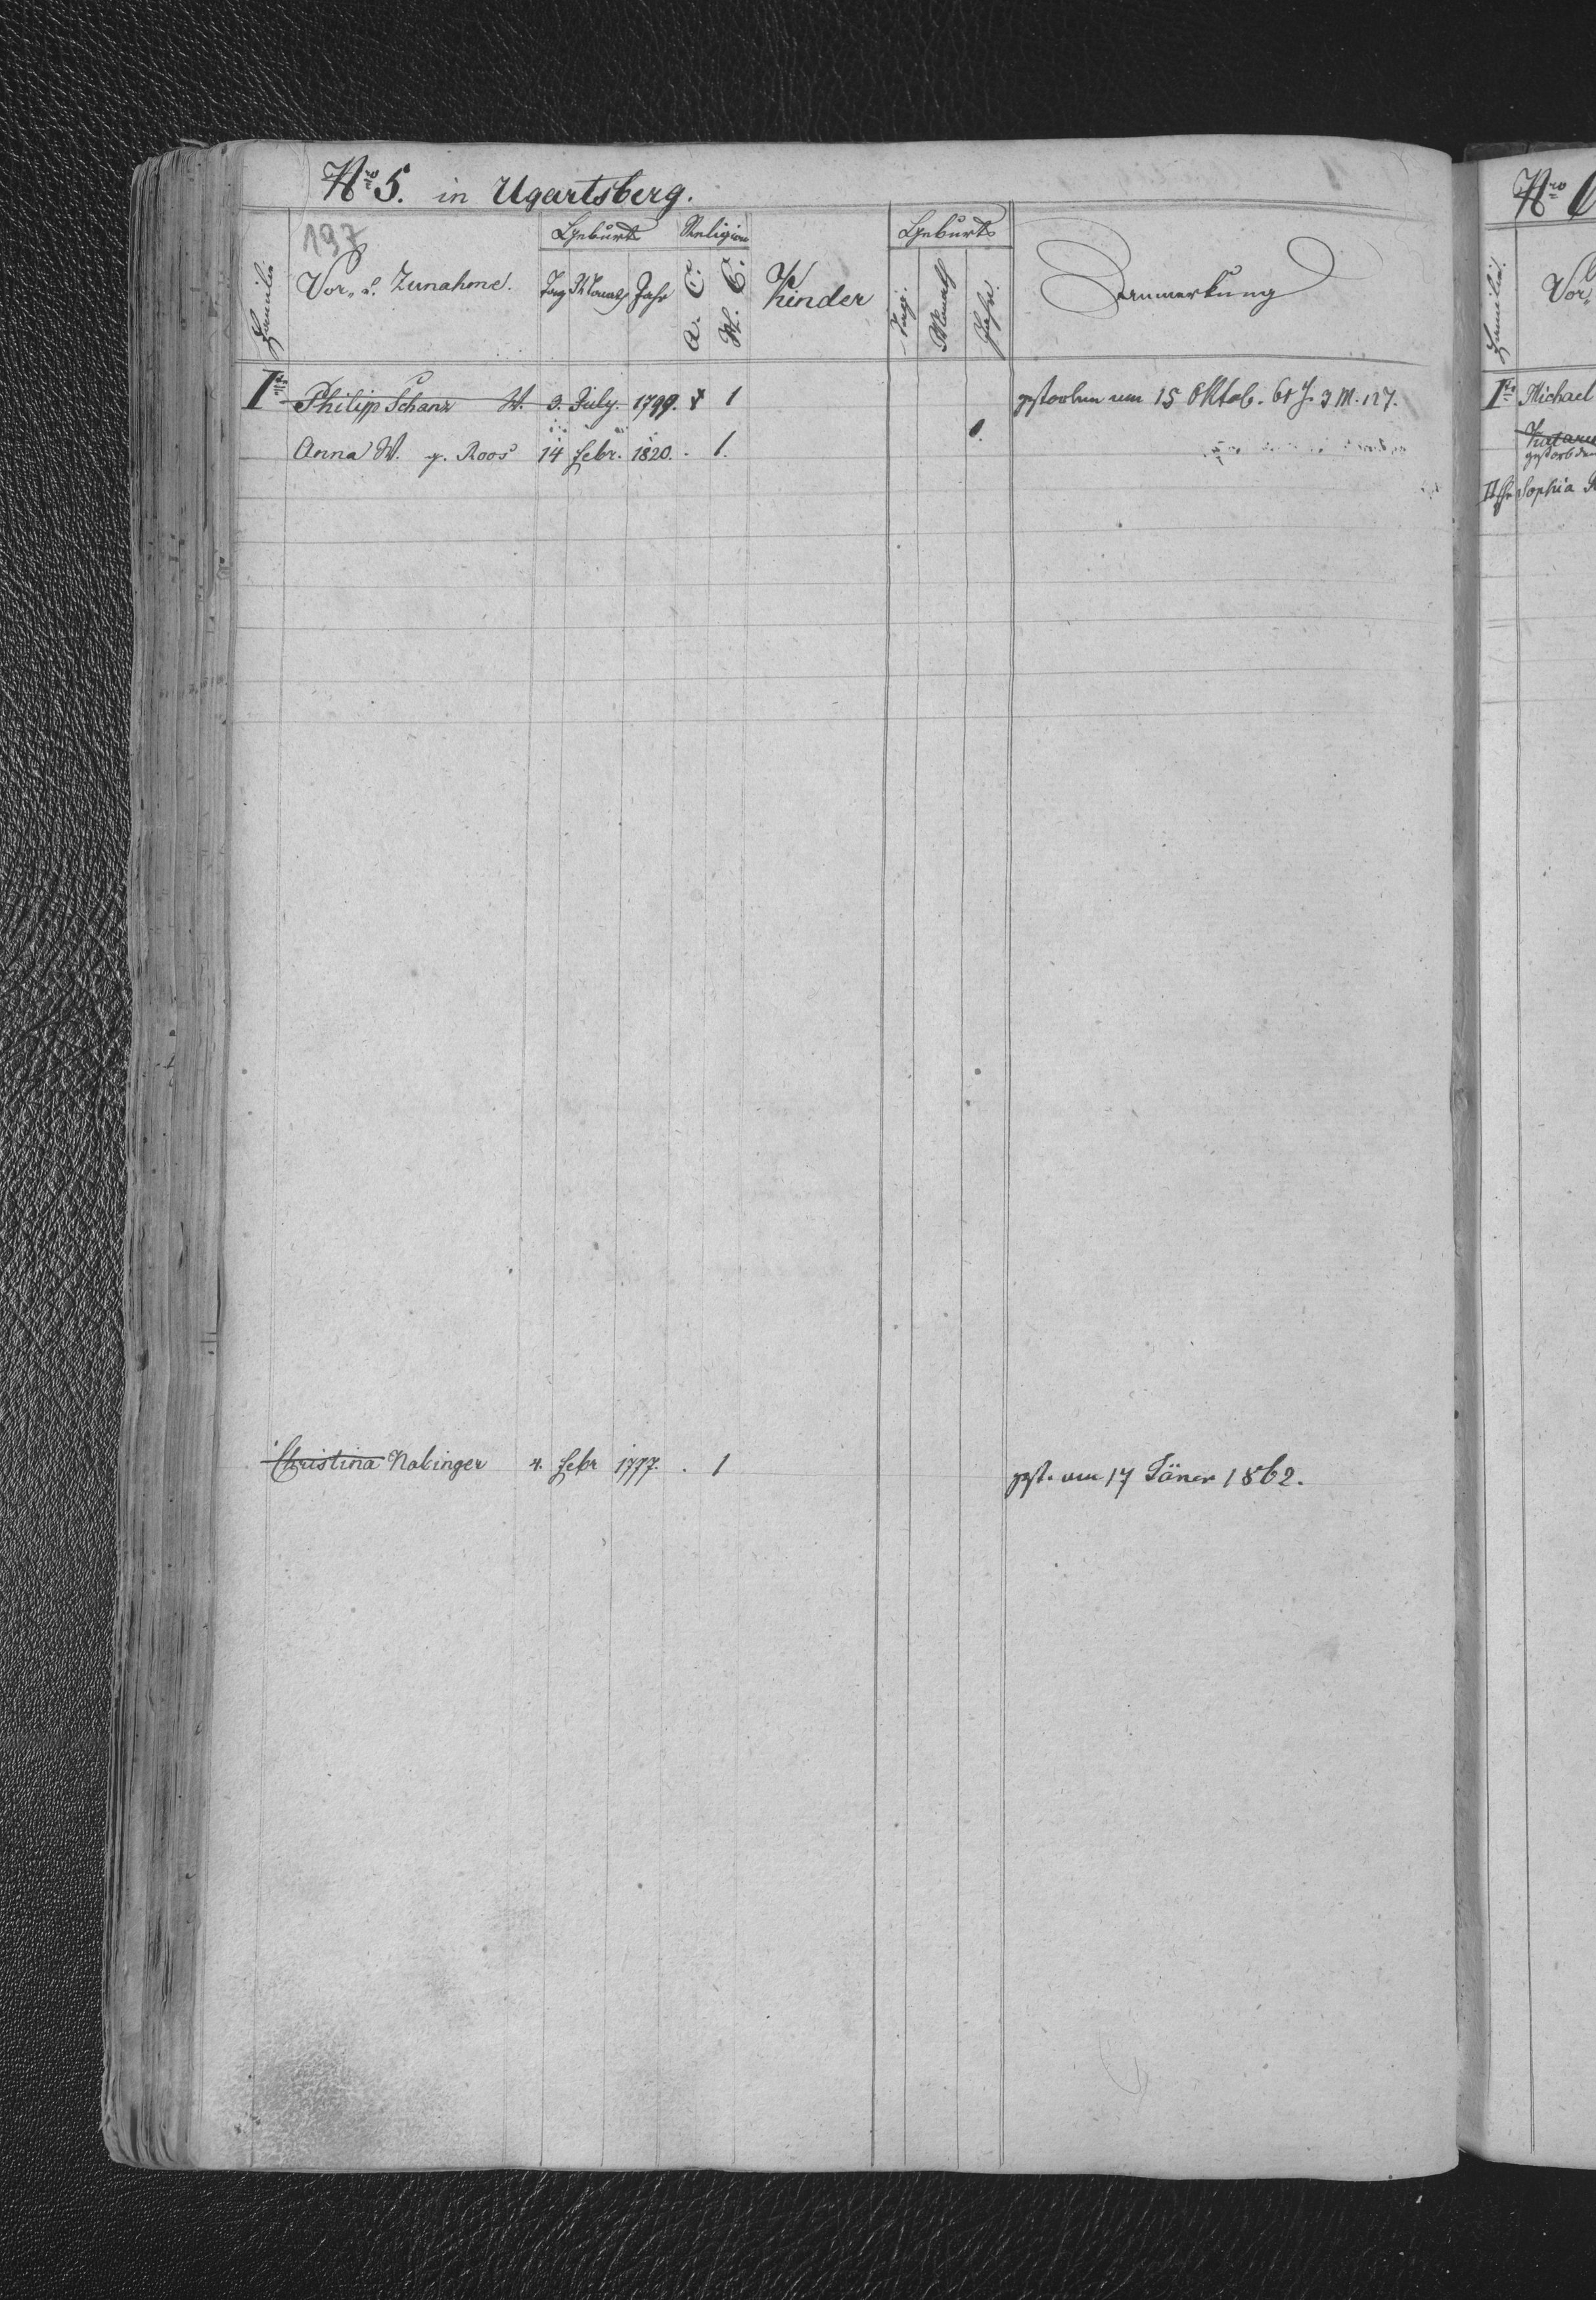 Nro 5. in Ugartsberg.
197
Familie Vor- u. Zunahme. Geburts Tag Monath Jahr Religion A. C. H. C. Kinder Geburts Tag. Monath Jahr. Anmerkung
Ite Philipp Schanz W. 3. July. 1799. 1 gestorben am 15 Oktob. 61 J. 3 M. 12 T.
Anna W. g. Roos 14 Febr. 1820. 1.
Christina Nabinger 4. Febr 1777. 1 gest. am 17 Jäner 1862.
Nro
Familie. Vor-
Ite Michael
gestorben
II Fr Sophia